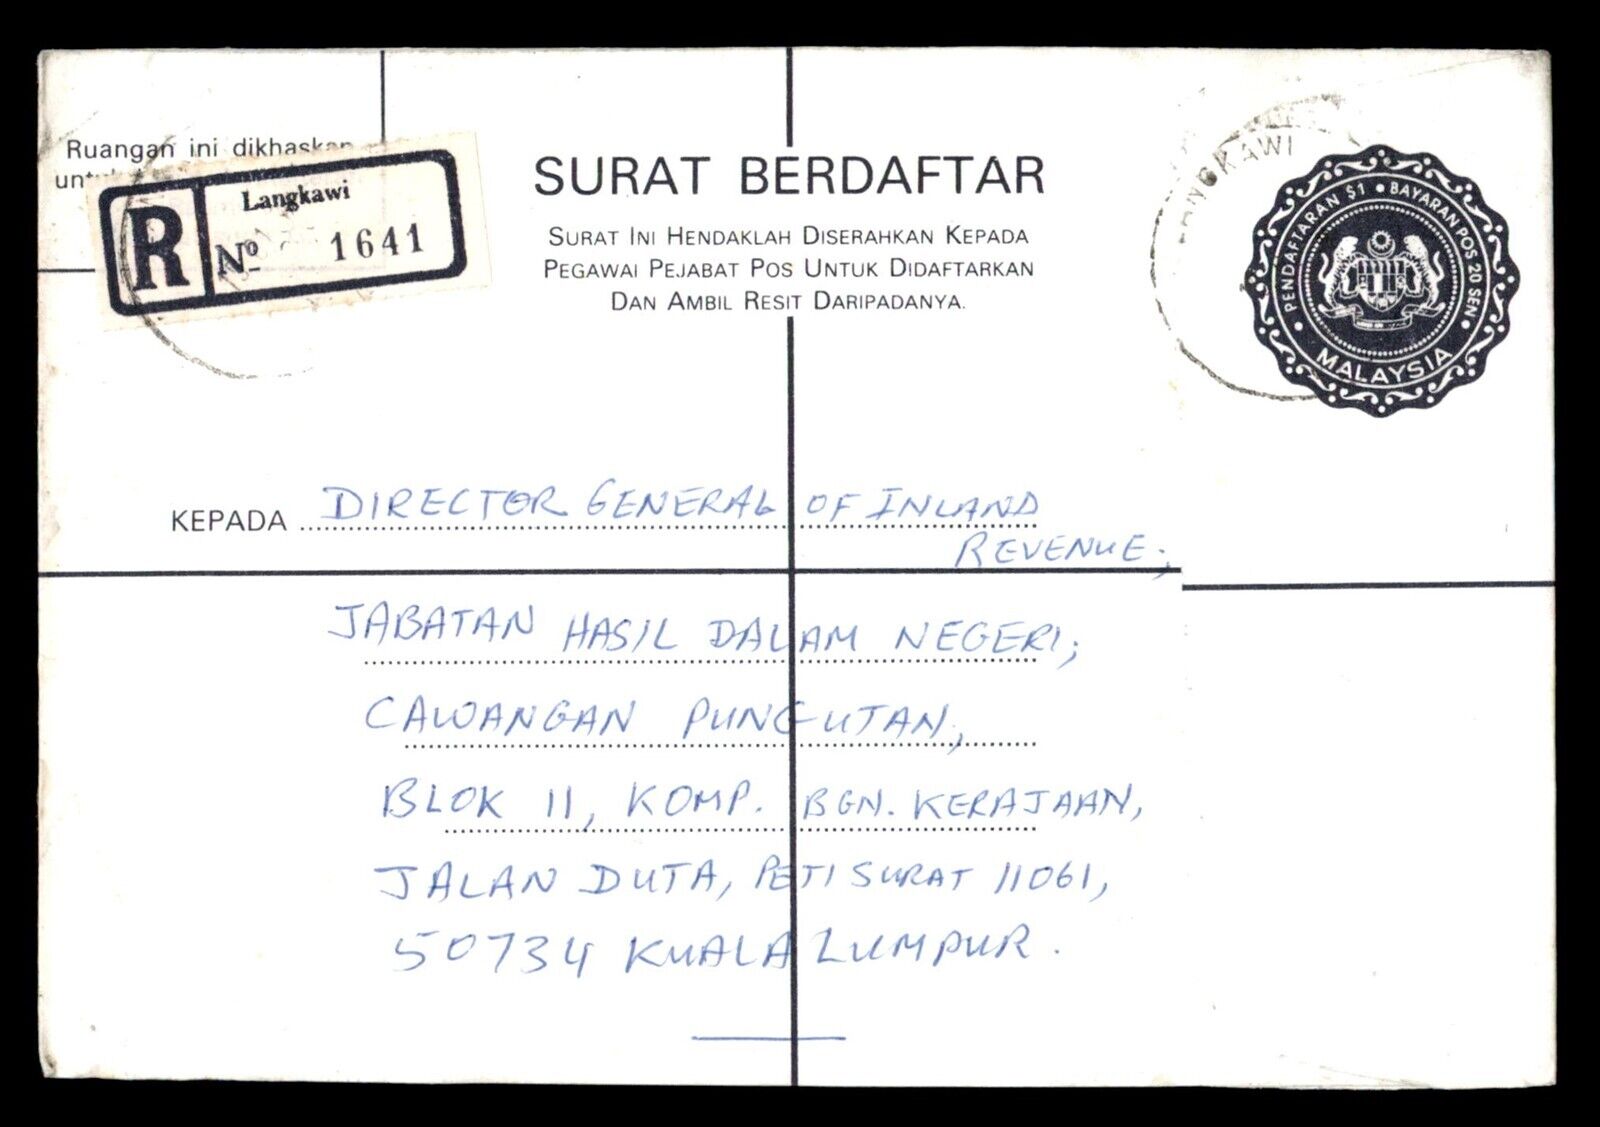 Ruangan ini dikhaskan
R
Langkawi
Nº 1641
SURAT BERDAFTAR
SURAT INI HENDAKLAH DISERAHKAN KEPADA
PEGAWAI PEJABAT POS UNTUK DIDAFTARKAN
DAN AMBIL RESIT DARIPADANYA.
LANGKAWI
PENDAFTARAN $1 • BAYARAN POS 20 SEN
MALAYSIA
KEPADA DIRECTOR GENERAL OF INLAND
REVENUE;
JABATAN HASIL DALAM NEGERI;
CAWANGAN PUNGUTAN,
BLOK 11, KOMP. BGN. KERAJAAN,
JALAN DUTA, PETI SURAT 11061,
50734 KUALA LUMPUR.